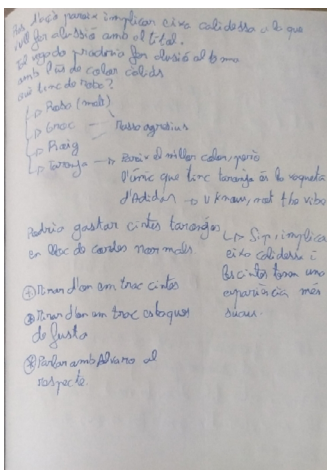 Per l'acció pareix implicar eixa calidessa a la que
vull fer alussió amb el títol.
Tal vegada podria fer alusió al tema
amb l'ús de colors càlids
què tinc de roba?
→ Rosa (molt)
→ Groc — Massa agresius
→ Roig
→ Taronja → Pareix el millor color, però
l'únic que tinc taronja és la roqueta
d'Adidas → U know, not the vibe
Podria gastar cintes taronges
en lloc de cordes normals
↳ Sip, implica
eixa calidessa i
les cintes tenen una
experiència més
suau.
① Mirar d'on em trac cintes
② Mirar d'on em trac estaques
de fusta
③ Parlar amb Alvaro al
respecte.